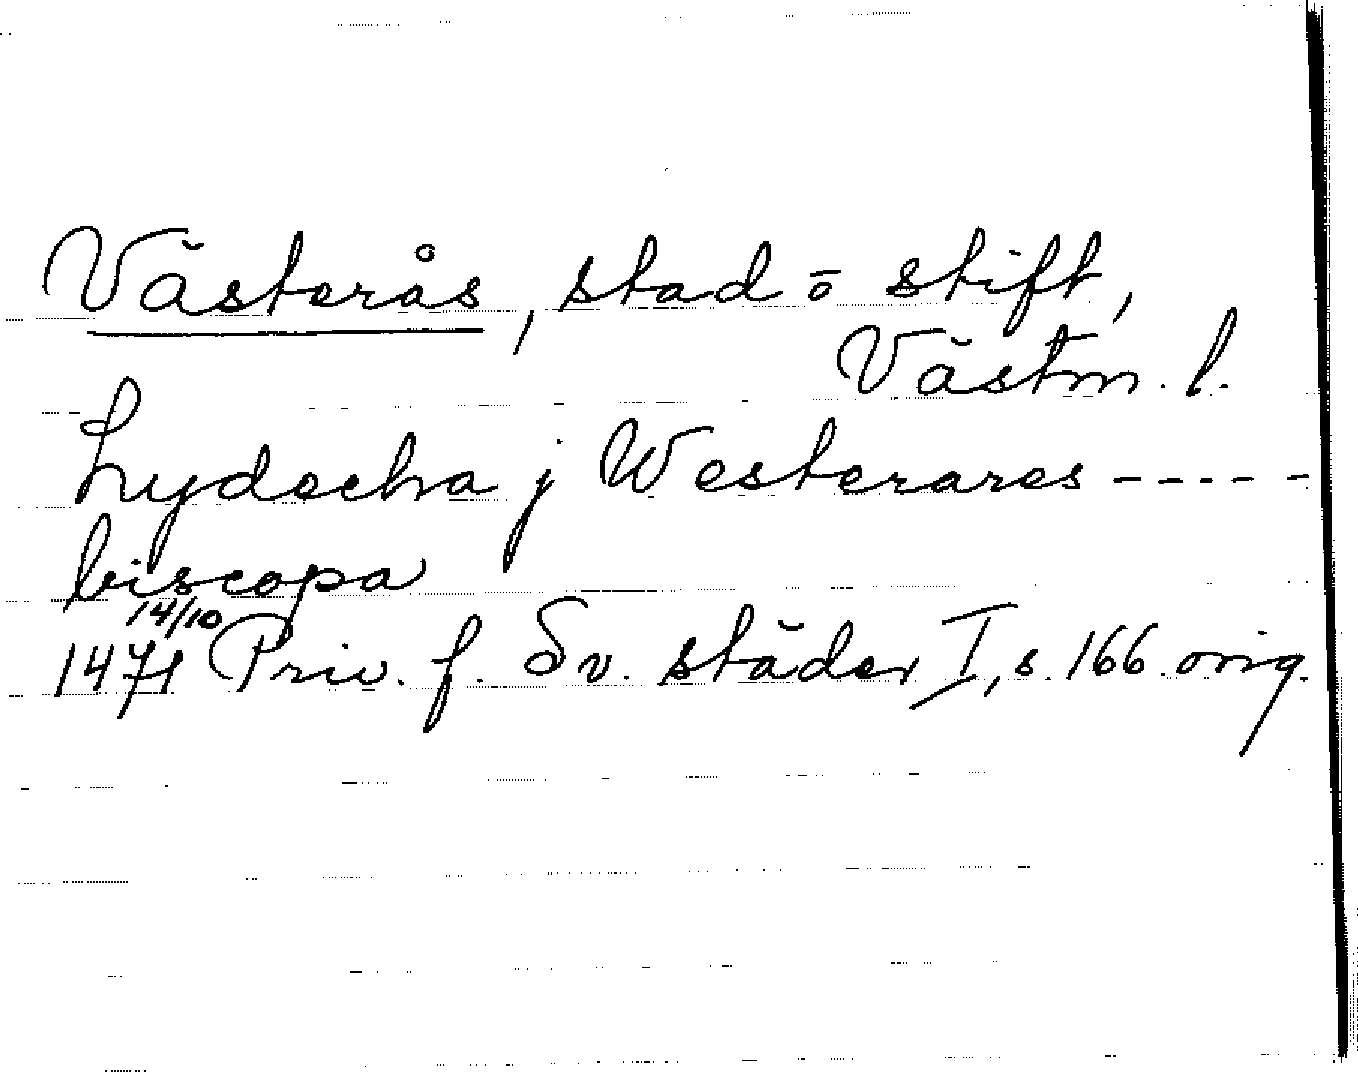 Västerås, stad ō stift,
Västm. l.
Lydecha j Westerares -----
biscopa
14/10
1471 Priv. f. Sv. städer I, s. 166. orig.